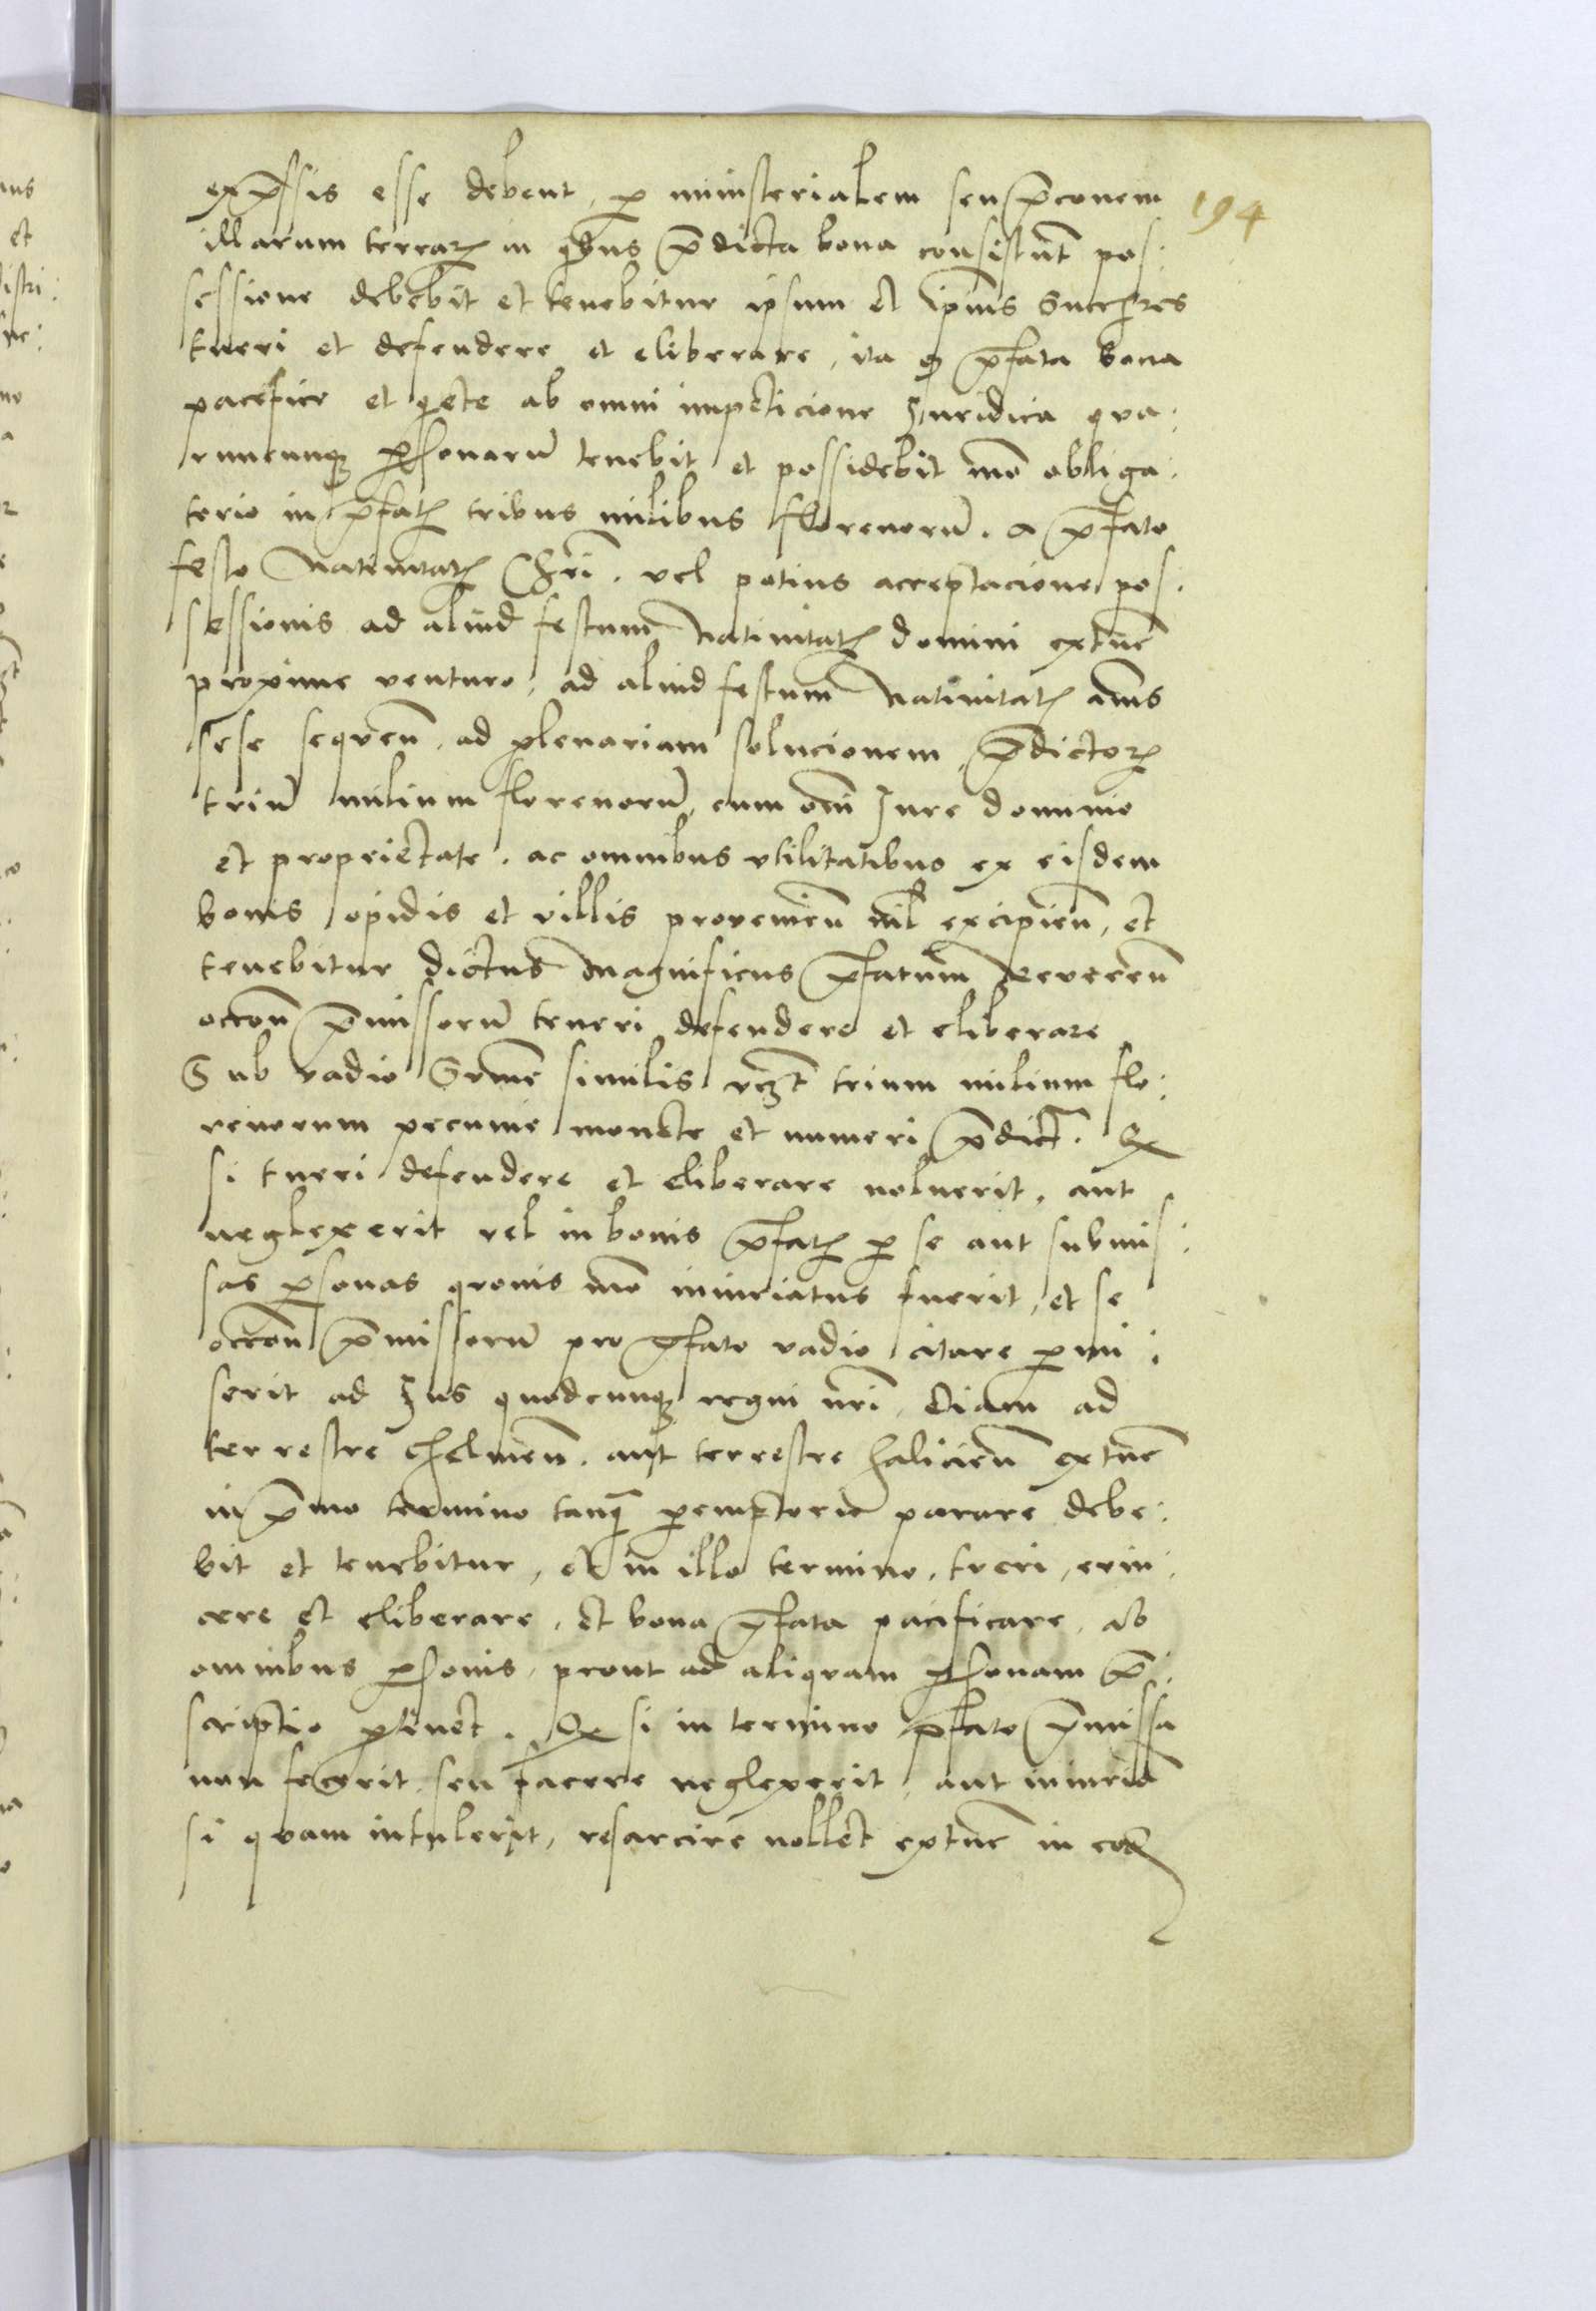 exp̄ssis esse debent, ꝑ ministerialem seu p̄conem
194
illarum terraꝝ in qbus p̄dicta bona consistūt pos:
sessione debebit et tenebitur ipsum et ip̄ius Succ̄res
tueri et defendere et eliberare, ita ꝙ p̄fata bona
pacifice et qete ab omni impeticione Juridica qua:
rumcunqꝫ ꝑsonarū tenebit et possidebit mō obliga:
torio in p̄fatꝭ tribus milibus florenorū. A p̄fato
festo Nativitatꝭ Chri. vel potius acceptacione pos:
sessionis ad aliud festum Nativitatꝭ domini extūc
proxime venturo, ad aliud festum Nativitatꝭ
sese sequen̄. ad plenariam solucionem p̄dictoꝝ
triū milium florenorū, cum om̄i Jure dominio
et proprietate. ac omnibus utilitatibus ex eisdem
bonis opidis et villis provenien̄ nīl excipien̄, et
tenebitur dictus Magnificus p̄fatum Reveren̄
occōn p̄missorū tueri defendere et eliberare
Sub vadio Sūme similis vꝫt trium milium flo:
renorum pecunie monete et numeri p̄dict̄. Qꝫ
si tueri defendere et eliberare noluerit, aut
neglexerit vel in bonis p̄fatꝭ ꝑ se aut submis:
sas ꝑsonas qvovis mō iniuriatus fuerit, et se
occōn p̄missorū pro p̄fato vadio citare ꝑmi:
serit ad Jus quodcunqꝫ regni nr̄i, Etiam ad
terrestre Chelmen̄. aut terrestre Halicien̄ extūc
in p̄mo termino tanq̄ ꝑemptorie parare debe:
bit et tenebitur, et in illo termino, tueri, evin:
cere et eliberare, et bona p̄fata pacificare, ab
omnibus ꝑsonis, prout ad aliquam ꝑsonam p̄:
scriptio ꝑtinet. Qꝫ si in termino p̄fato p̄missa
non fecerit, seu facere neglexerit, aut iniuriā
si quam intulerit, resarcire nollet extūc in